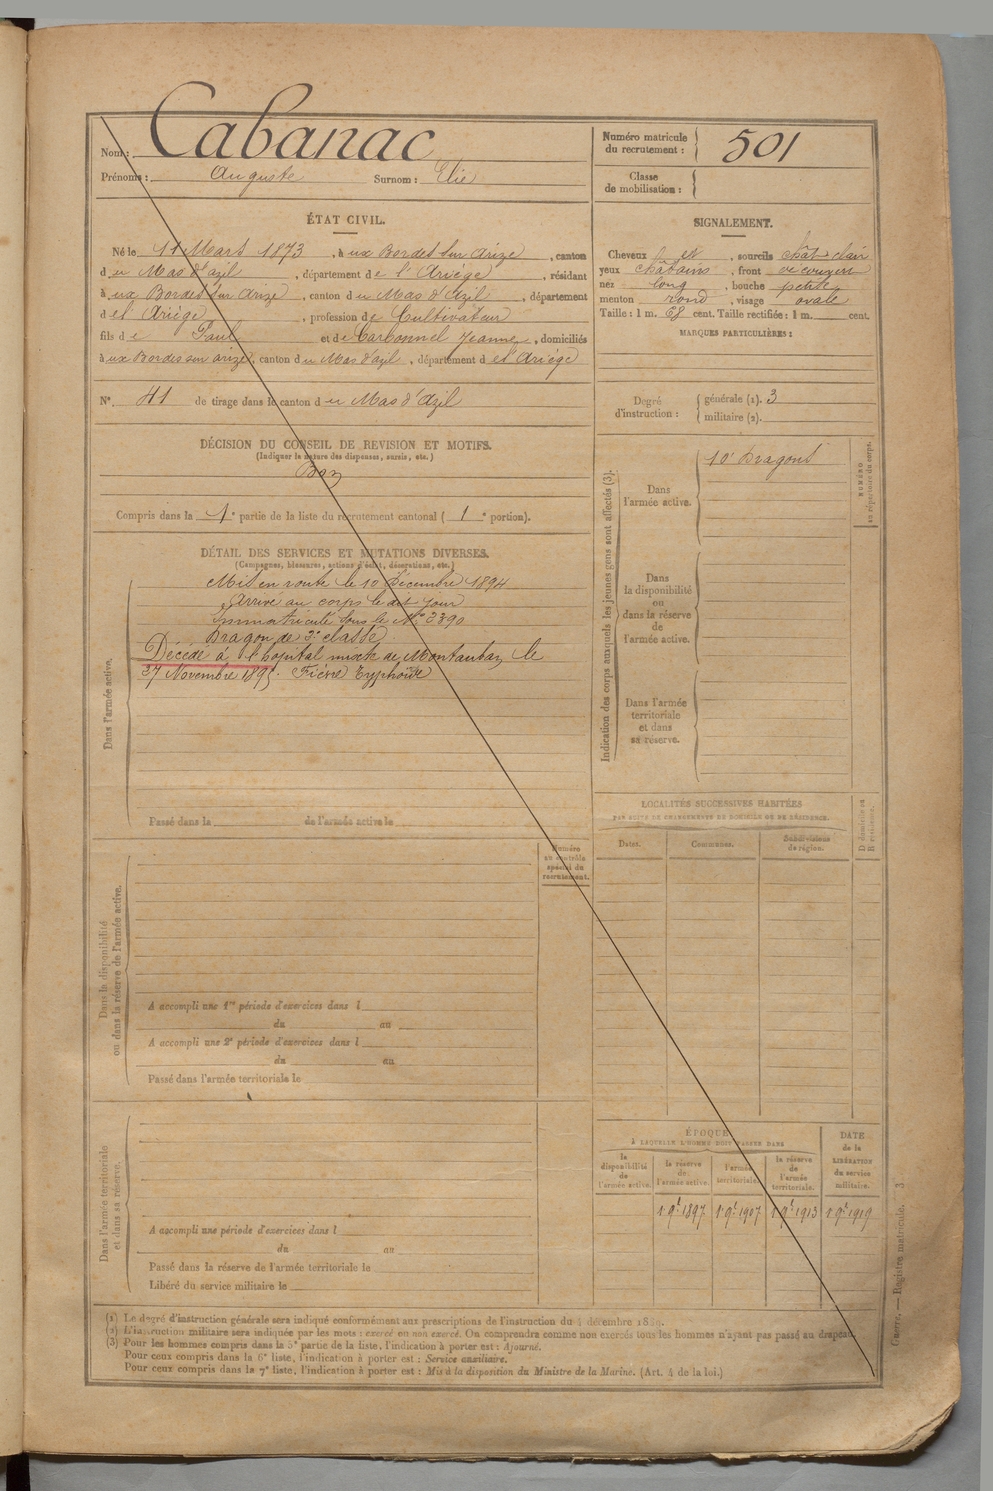 Nom : Cabanac
Prénoms : Auguste Surnom : Elie
Numéro matricule
du recrutement : 501
Classe
de mobilisation :
ÉTAT CIVIL.
Né le 11 Mars 1873, à ux Bordes sur Arize, canton
du Mas d'azil, département de l'Ariège, résidant
à ux Bordes sur Arize, canton du Mas d'Azil, département
de l'Ariège, profession de Cultivateur
fils de Paul et de Carbonnel Jeanne, domiciliés
à ux Bordes sur arize, canton du Mas d'azil, département de l'Ariège
N° 41 de tirage dans le canton du Mas d'Azil
DÉCISION DU CONSEIL DE REVISION ET MOTIFS.
(Indiquer la nature des dispenses, sursis, etc.)
Bon
Compris dans la 1e partie de la liste du recrutement cantonal ( 1e portion).
DÉTAIL DES SERVICES ET MUTATIONS DIVERSES.
(Campagnes, blessures, actions d'éclat, décorations, etc.)
Dans l'armée active.
Mis en route le 10 Décembre 1894
Arrivé au corps le dit jour
Immatriculé sous le N° 3890
Dragon de 2e classe
Décédé à l'hopital mixte de Montauban le
27 Novembre 1895. Fièvre Typhoïde
Passé dans la de l'armée active le
Numéro
au contrôle
spécial du
recrutement.
Dans la disponibilité
ou dans la réserve de l'armée active.
A accompli une 1re période d'exercices dans l
du au
A accompli une 2e période d'exercices dans l
du au
Passé dans l'armée territoriale le
Dans l'armée territoriale
et dans sa réserve.
A accompli une période d'exercices dans l
du au
Passé dans la réserve de l'armée territoriale le
Libéré du service militaire le
SIGNALEMENT.
Cheveux et, sourcils chât clair
yeux châtains, front découvert
nez long, bouche petite
menton rond, visage ovale
Taille : 1 m. 68 cent. Taille rectifiée : 1 m. cent.
MARQUES PARTICULIÈRES :
Degré
d'instruction :
générale (1). 3
militaire (2).
Indication des corps auxquels les jeunes gens sont affectés (3).
NUMÉRO
au répertoire du corps.
Dans
l'armée active.
10e Dragons
Dans
la disponibilité
ou
dans la réserve
de
l'armée active.
Dans l'armée
territoriale
et dans
sa réserve.
LOCALITÉS SUCCESSIVES HABITÉES
PAR SUITE DE CHANGEMENTS DE DOMICILE OU DE RÉSIDENCE.
Dates.
Communes.
Subdivisions
de région.
D domicile ou
R résidence.
ÉPOQUE
À LAQUELLE L'HOMME DOIT PASSER DANS
la
disponibilité
de
l'armée active.
la réserve
de
l'armée active.
l'armée
territoriale.
la réserve
de
l'armée
territoriale.
DATE
de la
LIBÉRATION
du service
militaire.
1 9e 1897 1 9e 1907 1 9e 1913 1 9e 1919
(1) Le degré d'instruction générale sera indiqué conformément aux prescriptions de l'instruction du 4 décembre 1889.
(2) L'instruction militaire sera indiquée par les mots : exercé ou non exercé. On comprendra comme non exercés tous les hommes n'ayant pas passé au drapeau.
(3) Pour les hommes compris dans la 5e partie de la liste, l'indication à porter est : Ajourné.
Pour ceux compris dans la 6e liste, l'indication à porter est : Service auxiliaire.
Pour ceux compris dans la 7e liste, l'indication à porter est : Mis à la disposition du Ministre de la Marine. (Art. 4 de la loi.)
Guerre. — Registre matricule. 3